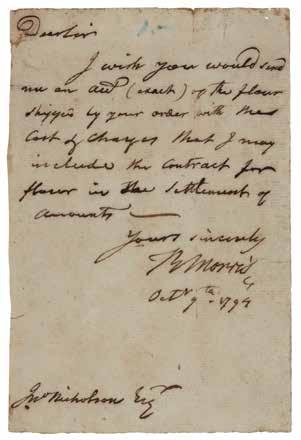 Dear Sir
I wish you would send
me an acct (exact) of the flour
shipped by your order with the
Cost & Charges that I may
include the contract for
flour in the settlement of
amounts —
Yours sincerely
Rt Morris
Octr 9th 1794
Jno Nicholson Esqr